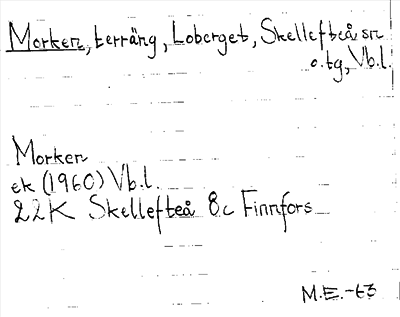 Morken, terräng, Loberget, Skellefteå sn
o. tg, Vb.l.
Morken
ek (1960) Vb.l.
22K Skellefteå 8c Finnfors
M.E.-63